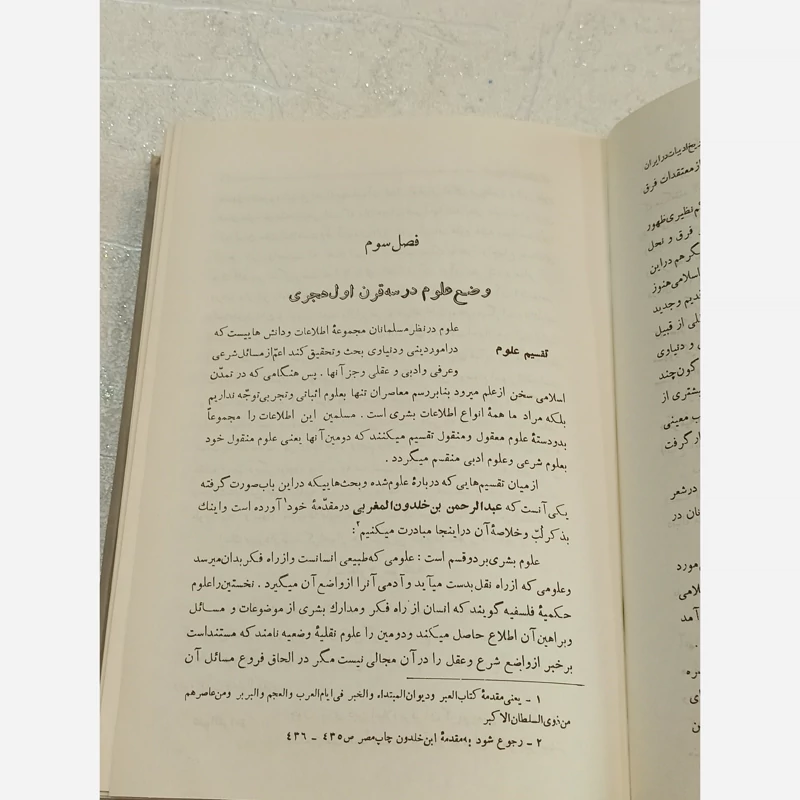 فصل سوم
وضع علوم در سه قرن اول هجری
تقسیم علوم
علوم در نظر مسلمانان مجموعهٔ اطلاعات و دانش هاییست که
در امور دینی و دنیاوی بحث و تحقیق کند اعم از مسائل شرعی
و عرفی و ادبی و عقلی و جز آنها . پس هنگامی که در تمدّن
اسلامی سخن از علم میرود بنابر رسم معاصران تنها بعلوم اثباتی و تجربی توجّه نداریم
بلکه مراد ما همهٔ انواع اطلاعات بشری است . مسلمین این اطلاعات را مجموعاً
بدو دستهٔ علوم معقول و منقول تقسیم میکنند که دومین آنها یعنی علوم منقول خود
بعلوم شرعی و علوم ادبی منقسم میگردد .
از میان تقسیم هایی که دربارهٔ علوم شده و بحث هاییکه در این باب صورت گرفته
یکی آنست که عبدالرحمن بن خلدون المغربی در مقدّمهٔ خود۱ آورده است و اینك
بذکر لُبّ و خلاصهٔ آن در اینجا مبادرت میکنیم۲:
علوم بشری بر دو قسم است : علومی که طبیعی انسانست و از راه فکر بدان میرسد
و علومی که از راه نقل بدست میآید و آدمی آنرا از واضع آن میگیرد . نخستین را علوم
حکمیهٔ فلسفیه گویند که انسان از راه فکر و مدارك بشری از موضوعات و مسائل
و براهین آن اطلاع حاصل میکند و دومین را علوم نقلیهٔ وضعیه نامند که مستند است
بر خبر از واضع شرع و عقل را در آن مجالی نیست مگر در الحاق فروع مسائل آن
۱ - یعنی مقدمهٔ کتاب العبر و دیوان المبتداء و الخبر فی ایام العرب و العجم و البربر و من عاصرهم
من ذوی السلطان الاکبر
۲ - رجوع شود به مقدمهٔ ابن خلدون چاپ مصر ص ٤٣٥ - ٤٣٦
ادبیات در ایران
از معتقدات فرق
نظیری ظهور
فرق و نحل
هم در این
اسلامی هنوز
و جدید
از قبیل
و دنیاوی
چند
بیشتری از
معینی
گرفت
در شعر
در
مورد